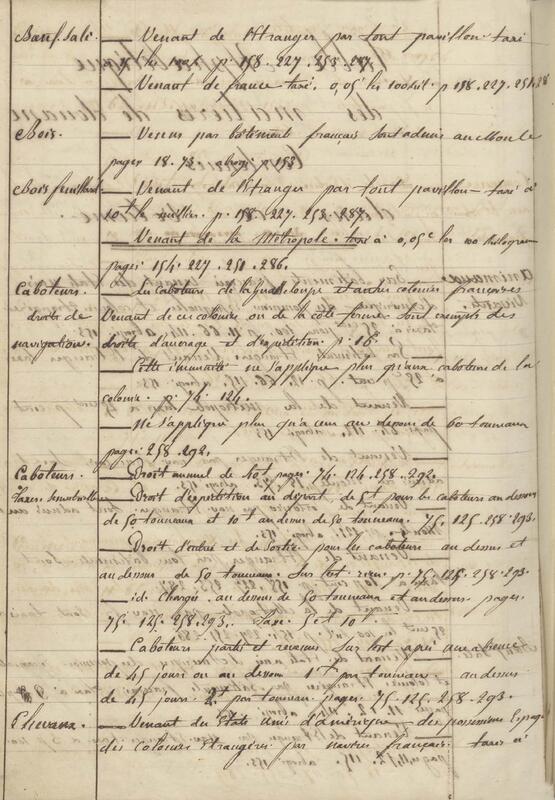 Bœuf salé. — Venant de l'Etranger par tout pavillon taxé
15f les 100k p. 158. 227. 253. 287.
— Venant de france taxé. 0,05c les 100kil. p 158. 227. 251. 28
Bois. — Venus par bâtiments français sont admis au
pages 18. 73. abrogé p 158
Bois feuillard — Venant de l'Etranger par tout pavillon — taxé à
10f le millier. p. 158. 227. 253. 287.
— Venant de la Métropole. taxé à 0,05c les 100 kilogram
pages 154. 227. 251. 286.
Caboteurs. — Les caboteurs de la Guadeloupe et autres colonies françaises
droits de Venant de ces colonies ou de la côte ferme sont exempts des
navigation. droits d'ancrage et d'expédition. p. 16.
— Cette immunité ne s'applique plus qu'aux caboteurs de la
colonie. p. 74. 124.
— Ne s'applique plus qu'à ceux au dessous de 60 tonneaux
pages 258. 292.
Caboteurs. — Droit annuel de 40f pages. 74. 124. 258. 292.
— Droit d'expédition au départ, de 5f pour les caboteurs au dessous
de 50 tonneaux et 10f au dessus de 50 tonneaux. 75. 125. 258. 293.
— Droit d'entrée et de sortie pour les caboteurs au dessus et
au dessous de 50 tonneaux. Sur lest rien. p. 75. 125. 258. 293.
— id. Chargés. au dessous de 50 tonneaux et au dessus. pages.
75. 125. 258. 293. Taxe. 5 et 10f.
— Caboteurs partis et revenus sur lest après une absence
de 45 jours ou au dessous 1f par tonneau au dessus
de 45 jours. 2f par tonneau. pages. 75. 125. 258. 293.
Chevaux. — Venant des Etats Unis d'amérique — des possessions Espag
des colonies étrangères par navires français. taxés à